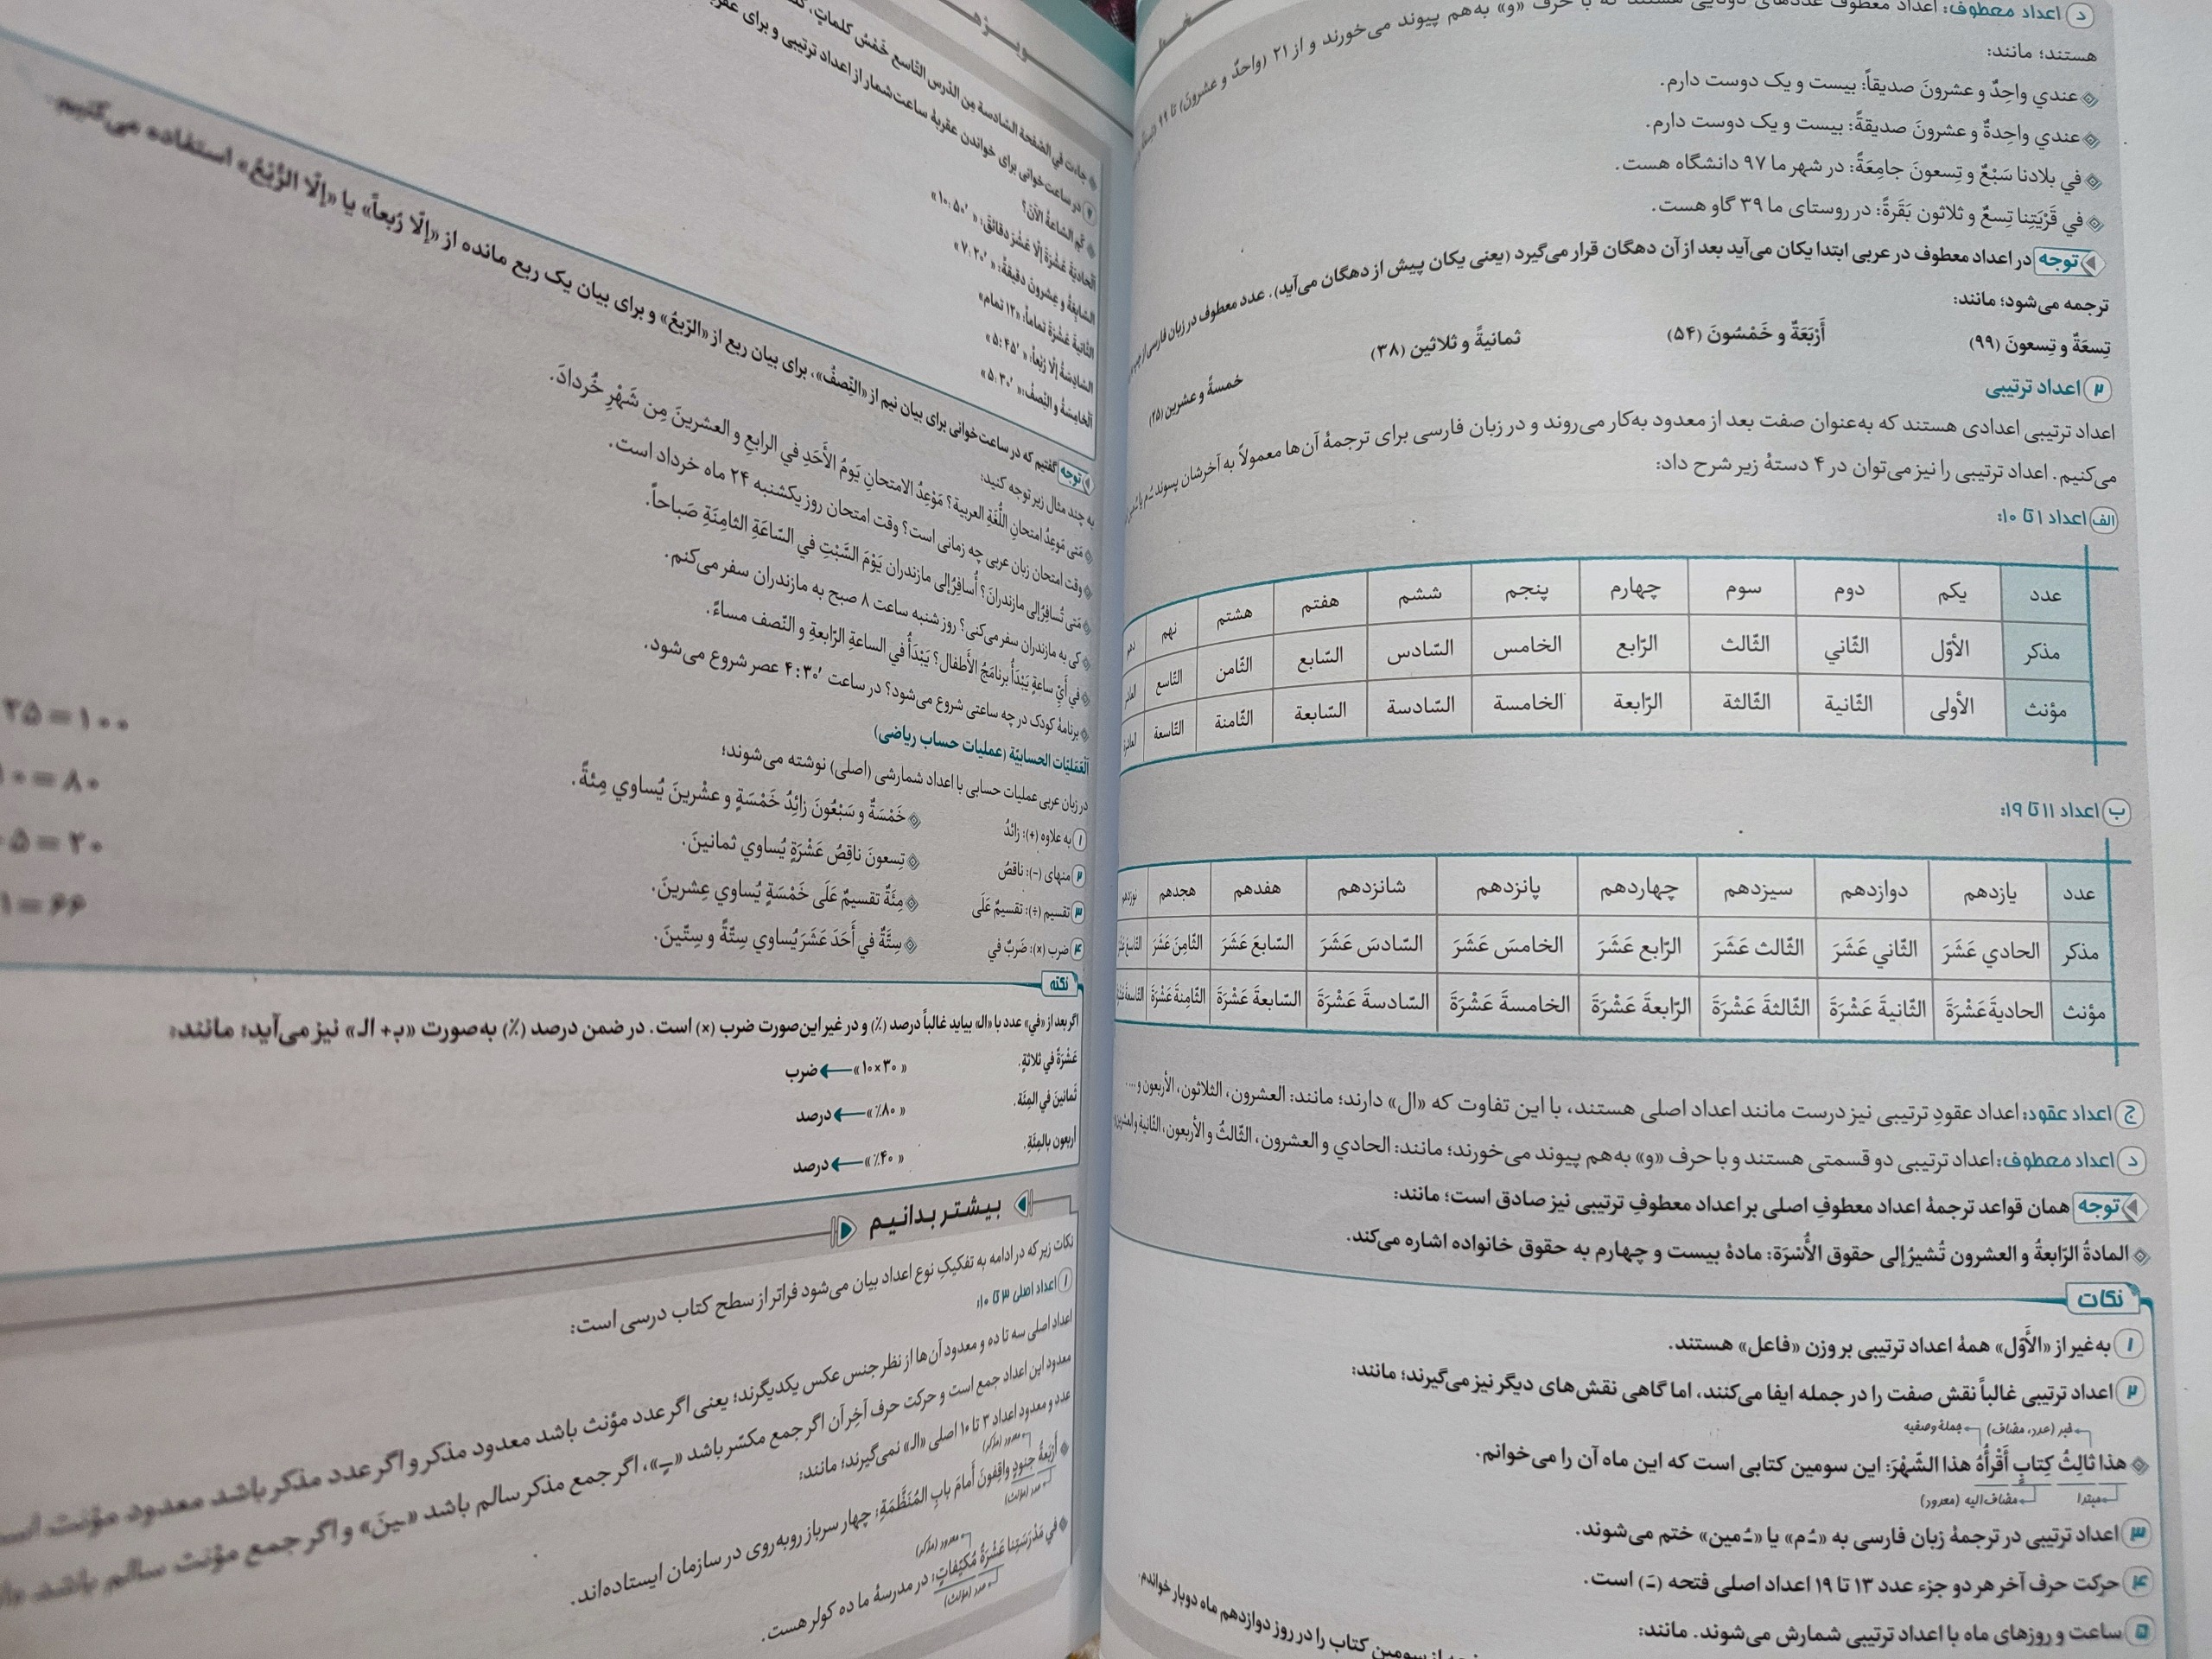 د اعداد معطوف: اعداد معطوف عددهای دوتایی هستند که با حرف «و» به‌هم پیوند می‌خورند و از ۲۱ (واحدٌ و عشرونَ) تا ۹۹
هستند؛ مانند:
عندي واحِدٌ و عشرونَ صديقاً: بیست و یک دوست دارم.
عندي واحِدةٌ و عشرونَ صديقةً: بیست و یک دوست دارم.
في بلادنا سَبْعٌ و تِسعونَ جامِعَةً: در شهر ما ۹۷ دانشگاه هست.
في قَرْيَتِنا تِسعٌ و ثلاثون بَقَرةً: در روستای ما ۳۹ گاو هست.
توجه در اعداد معطوف در عربی ابتدا یکان می‌آید بعد از آن دهگان قرار می‌گیرد (یعنی یکان پیش از دهگان می‌آید). عدد معطوف در زبان فارسی از
ترجمه می‌شود؛ مانند:
تِسعَةٌ و تِسعونَ (۹۹) أَرْبَعَةٌ و خَمْسُونَ (۵۴) ثمانيةً و ثلاثين (۳۸) خمسةً و عشرين (۲۵)
۲ اعداد ترتیبی
اعداد ترتیبی اعدادی هستند که به‌عنوان صفت بعد از معدود به‌کار می‌روند و در زبان فارسی برای ترجمهٔ آن‌ها معمولاً به آخرشان پسوند ـُ م یا
می‌کنیم. اعداد ترتیبی را نیز می‌توان در ۴ دستهٔ زیر شرح داد:
الف اعداد ۱ تا ۱۰:
عدد یکم دوم سوم چهارم پنجم ششم هفتم هشتم نهم دهم
مذکر الأوّل الثّاني الثّالث الرّابع الخامس السّادس السّابع الثّامن التّاسع
مؤنث الأولی الثّانية الثّالثة الرّابعة الخامسة السّادسة السّابعة الثّامنة التّاسعة
ب اعداد ۱۱ تا ۱۹:
عدد یازدهم دوازدهم سیزدهم چهاردهم پانزدهم شانزدهم هفدهم هجدهم نوزدهم
مذکر الحادي عَشَرَ الثّاني عَشَرَ الثّالث عَشَرَ الرّابع عَشَرَ الخامسَ عَشَرَ السّادسَ عَشَرَ السّابعَ عَشَرَ الثّامِنَ عَشَرَ
مؤنث الحاديةَ عَشْرَةَ الثّانيةَ عَشْرَةَ الثّالثةَ عَشْرَةَ الرّابعةَ عَشْرَةَ الخامسةَ عَشْرَةَ السّادسةَ عَشْرَةَ السّابعةَ عَشْرَةَ الثّامِنةَ عَشْرَةَ
ج اعداد عقود: اعداد عقودِ ترتیبی نیز درست مانند اعداد اصلی هستند، با این تفاوت که «ال» دارند؛ مانند: العشرون، الثلاثون، الأربعون و....
د اعداد معطوف: اعداد ترتیبی دو قسمتی هستند و با حرف «و» به‌هم پیوند می‌خورند؛ مانند: الحادي و العشرون، الثّالثُ و الأربعون، الثّانية و العشرين
توجه همان قواعد ترجمهٔ اعداد معطوفِ اصلی بر اعداد معطوفِ ترتیبی نیز صادق است؛ مانند:
المادةُ الرّابعةُ و العشرون تُشيرُ إلی حقوق الأُسْرَة: مادهٔ بیست و چهارم به حقوق خانواده اشاره می‌کند.
نکات
۱ به‌غیر از «الأَوّل» همهٔ اعداد ترتیبی بر وزن «فاعل» هستند.
۲ اعداد ترتیبی غالباً نقش صفت را در جمله ایفا می‌کنند، اما گاهی نقش‌های دیگر نیز می‌گیرند؛ مانند:
خبر (عدد، مضاف) جملهٔ وصفیه
هذا ثالِثُ كِتابٍ أَقْرأُهُ هذا الشَّهْرَ: این سومین کتابی است که این ماه آن را می‌خوانم.
مبتدا مضاف‌الیه (معدود)
۳ اعداد ترتیبی در ترجمهٔ زبان فارسی به «ـُ م» یا «ـُ مین» ختم می‌شوند.
۴ حرکت حرف آخر هر دو جزء عدد ۱۳ تا ۱۹ اعداد اصلی فتحه (ـَ) است.
۵ ساعت و روزهای ماه با اعداد ترتیبی شمارش می‌شوند. مانند:
از سومین کتاب را در روز دوازدهم ماه دوبار خواندم.
جاءت في الصّفحة السّادسة مِن الدّرس التّاسع خَمْسُ كلماتٍ،
۷ در ساعت‌خوانی برای خواندن عقربهٔ ساعت‌شمار از اعداد ترتیبی و برای
كَمِ السّاعةُ الآنَ؟
اَلحاديةَ عَشْرَةَ إلّا عَشْرَ دقائقَ: «۱۰:۵۰′»
السّابعةُ و عِشرونَ دقيقةً: «۷:۲۰′»
الثّانيةَ عَشْرَةَ تماماً: «۱۲ تمام»
السّادِسَةُ إلّا رُبْعاً: «۵:۴۵′»
اَلخامِسَةُ و النِّصفُ: «۵:۳۰′»
توجه گفتیم که در ساعت‌خوانی برای بیان نیم از «النِّصفُ»، برای بیان ربع از «الرّبعُ» و برای بیان یک ربع مانده از «إلّا رُبعاً» یا «إلّا الرُّبْعَ» استفاده می‌کنیم.
به چند مثال زیر توجه کنید:
مَتی مَوعِدُ امتحانِ اللُّغَةِ العربية؟ مَوْعِدُ الامتحانِ يَومُ الأَحَدِ في الرابعِ و العشرينَ مِن شَهْرِ خُردادَ.
وقت امتحان زبان عربی چه زمانی است؟ وقت امتحان روز یکشنبه ۲۴ ماه خرداد است.
مَتی تُسافِرُ إلی مازندران؟ أُسافِرُ إلی مازندران يَوْمَ السَّبْتِ في السّاعَةِ الثامِنَةِ صَباحاً.
کی به مازندران سفر می‌کنی؟ روز شنبه ساعت ۸ صبح به مازندران سفر می‌کنم.
في أَيِّ ساعةٍ يَبْدَأُ برنامَجُ الأَطفال؟ يَبْدَأُ في الساعةِ الرّابعةِ و النِّصف مساءً.
برنامهٔ کودک در چه ساعتی شروع می‌شود؟ در ساعت ۴:۳۰′ عصر شروع می‌شود.
اَلْعَمَليّات الحسابيّة (عملیات حساب ریاضی)
در زبان عربی عملیات حسابی با اعداد شمارشی (اصلی) نوشته می‌شوند؛
۱ به علاوه (+): زائدُ خَمْسَةٌ و سَبْعُونَ زائِدُ خَمْسَةٍ و عشْرينَ يُساوي مِئةً. ۲۵=۱۰۰
۲ منهای (-): ناقصُ تِسعونَ ناقِصُ عَشْرَةٍ يُساوي ثمانينَ. ۱۰=۸۰
۳ تقسیم (÷): تقسيمٌ عَلَی مِئَةٌ تقسيمٌ عَلَی خَمْسَةٍ يُساوي عِشرينَ. ۵=۲۰
۴ ضرب (×): ضَربٌ في سِتَّةٌ في أَحَدَ عَشَرَ يُساوي سِتَّةً و سِتّينَ. ۱=۶۶
نکته
اگر بعد از «في» عدد با «الـ» بیاید غالباً درصد (٪) و در غیر این‌صورت ضرب (×) است. در ضمن درصد (٪) به‌صورت «بـ + الـ» نیز می‌آید؛ مانند:
عَشْرَةٌ في ثلاثةٍ. «۱۰×۳۰» ضرب
ثَمانينَ في المِئَة. «۸۰٪» درصد
أربعون بالمِئَةِ. «۴۰٪» درصد
بیشتر بدانیم
نکات زیر که در ادامه به تفکیکِ نوع اعداد بیان می‌شود فراتر از سطح کتاب درسی است:
۱ اعداد اصلی ۳ تا ۱۰:
اعداد اصلی سه تا ده و معدود آن‌ها از نظر جنس عکس یکدیگرند؛ یعنی اگر عدد مؤنث باشد معدود مذکر و اگر عدد مذکر باشد معدود مؤنث
معدود این اعداد جمع است و حرکت حرف آخِر آن اگر جمع مکسّر باشد «ـٍ»، اگر جمع مذکر سالم باشد «ـینَ» و اگر جمع مؤنث سالم باشد
عدد و معدود اعداد ۳ تا ۱۰ اصلی «الـ» نمی‌گیرند؛ مانند:
معدود (مذکر)
أَرْبَعةُ جنودٍ واقِفونَ أَمامَ بابِ المُنَظَّمَةِ: چهار سرباز روبه‌روی در سازمان ایستاده‌اند.
عدد (مؤنث)
معدود (مذکر)
في مَدْرَسَتِنا عَشْرَةُ مُكيّفاتٍ: در مدرسهٔ ما ده کولر هست.
عدد (مؤنث)